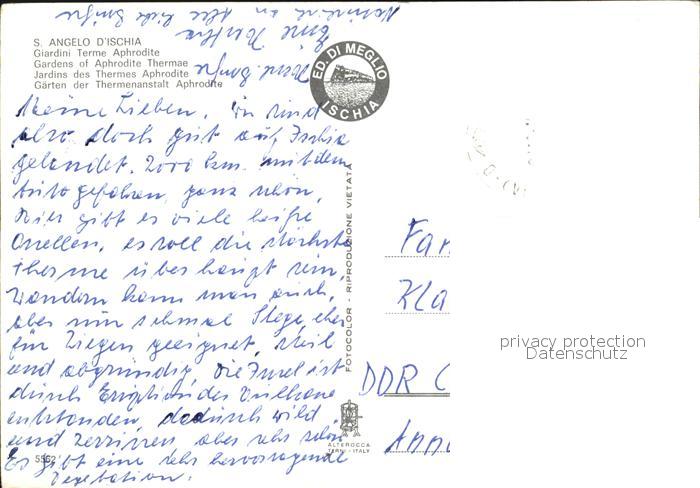 S. ANGELO D'ISCHIA
Giardini Terme Aphrodite
Gardens of Aphrodite Thermae
Jardins des Thermes Aphrodite
Gärten der Thermenanstalt Aphrodite
ED. DI MEGLIO
ISCHIA
Meine Lieben, wir sind
also doch gut auf Ischia
gelandet. 2000 km mit dem
Auto gefahren, ganz schön,
Hier gibt es viele heiße
Quellen, es soll die stärkste
Therme überhaupt sein,
Wandern kann man auch,
aber nur schmal Stege, eher
für Ziegen geeignet, steil
und abgründig. Die Insel ist
durch Eruption des Vulkans
entstanden, dadurch wild
und zerrissen, aber sehr schön
Es gibt eine sehr hervorragende
Vegetation.
5552
FOTOCOLOR - RIPRODUZIONE VIETATA
ALTEROCCA
TERNI - ITALY
Fam
Kla
DDR
Anna
privacy protection
Datenschutz